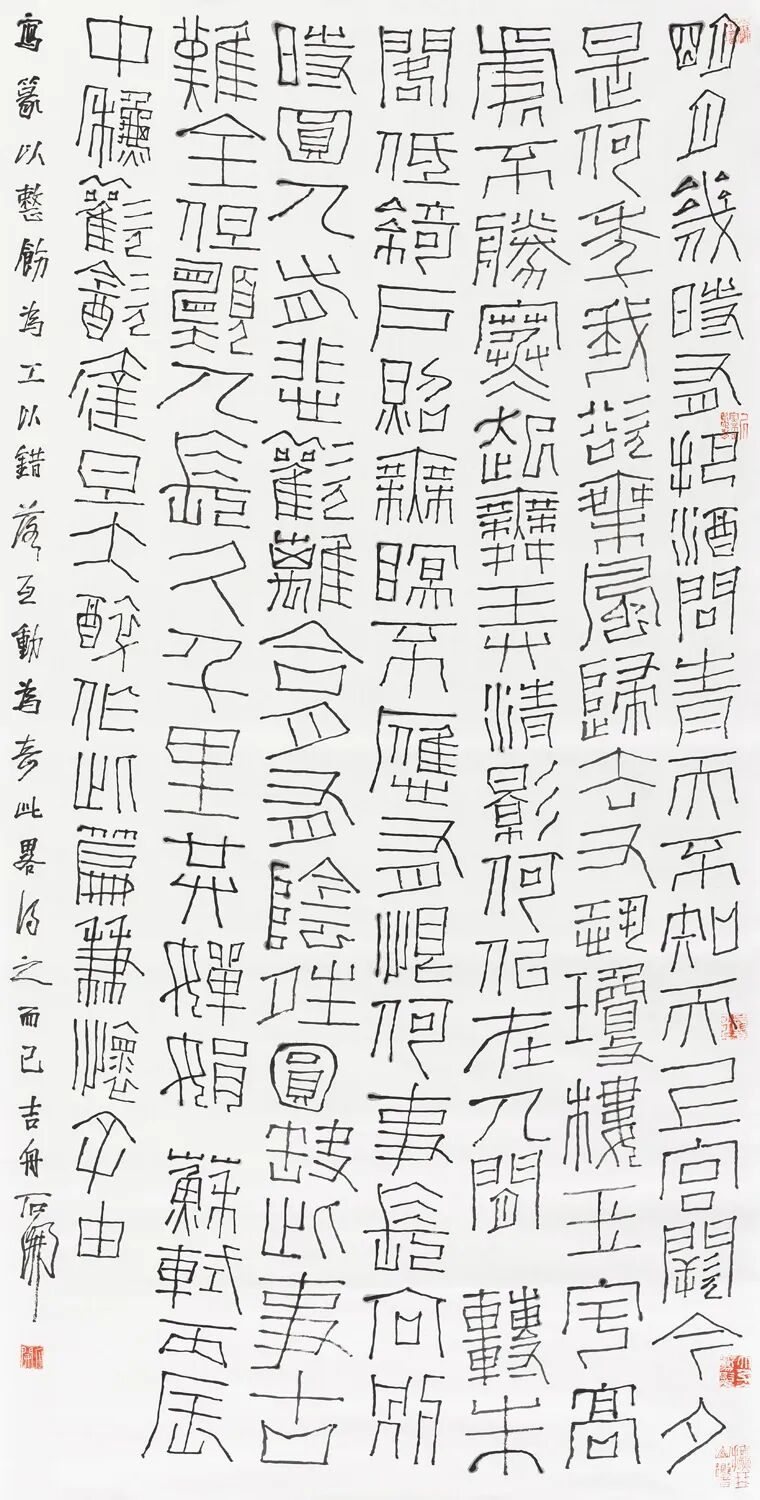 明月幾時有把酒問青天不知天上宮闕今夕
是何年我欲乘風歸去又恐瓊樓玉宇高
處不勝寒起舞弄清影何似在人間 轉朱
閣低綺戶照無眠不應有恨何事長向別
時圓人有悲歡離合月有陰晴圓缺此事古
難全但願人長久千里共嬋娟 蘇軾丙辰
中穐歡飲達旦大醉作此篇兼懷子由
寫篆以整飭為工以錯落互動為奇此畧得之而已吉舟石開